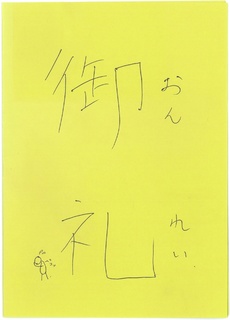 御礼
おんれい